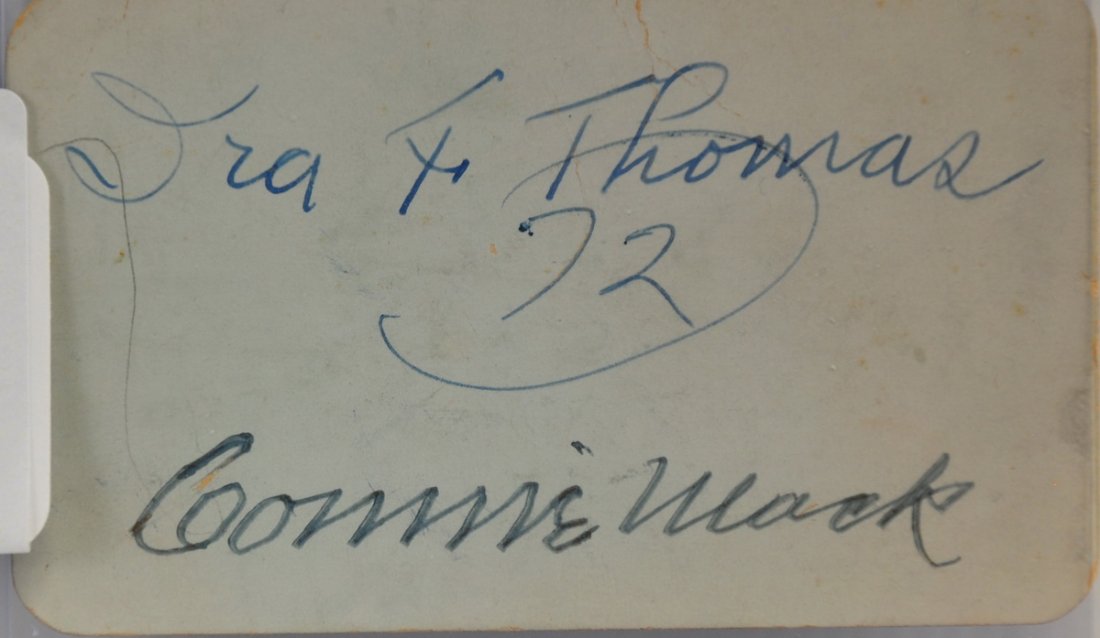 Ira F Thomas
72
Connie Mack